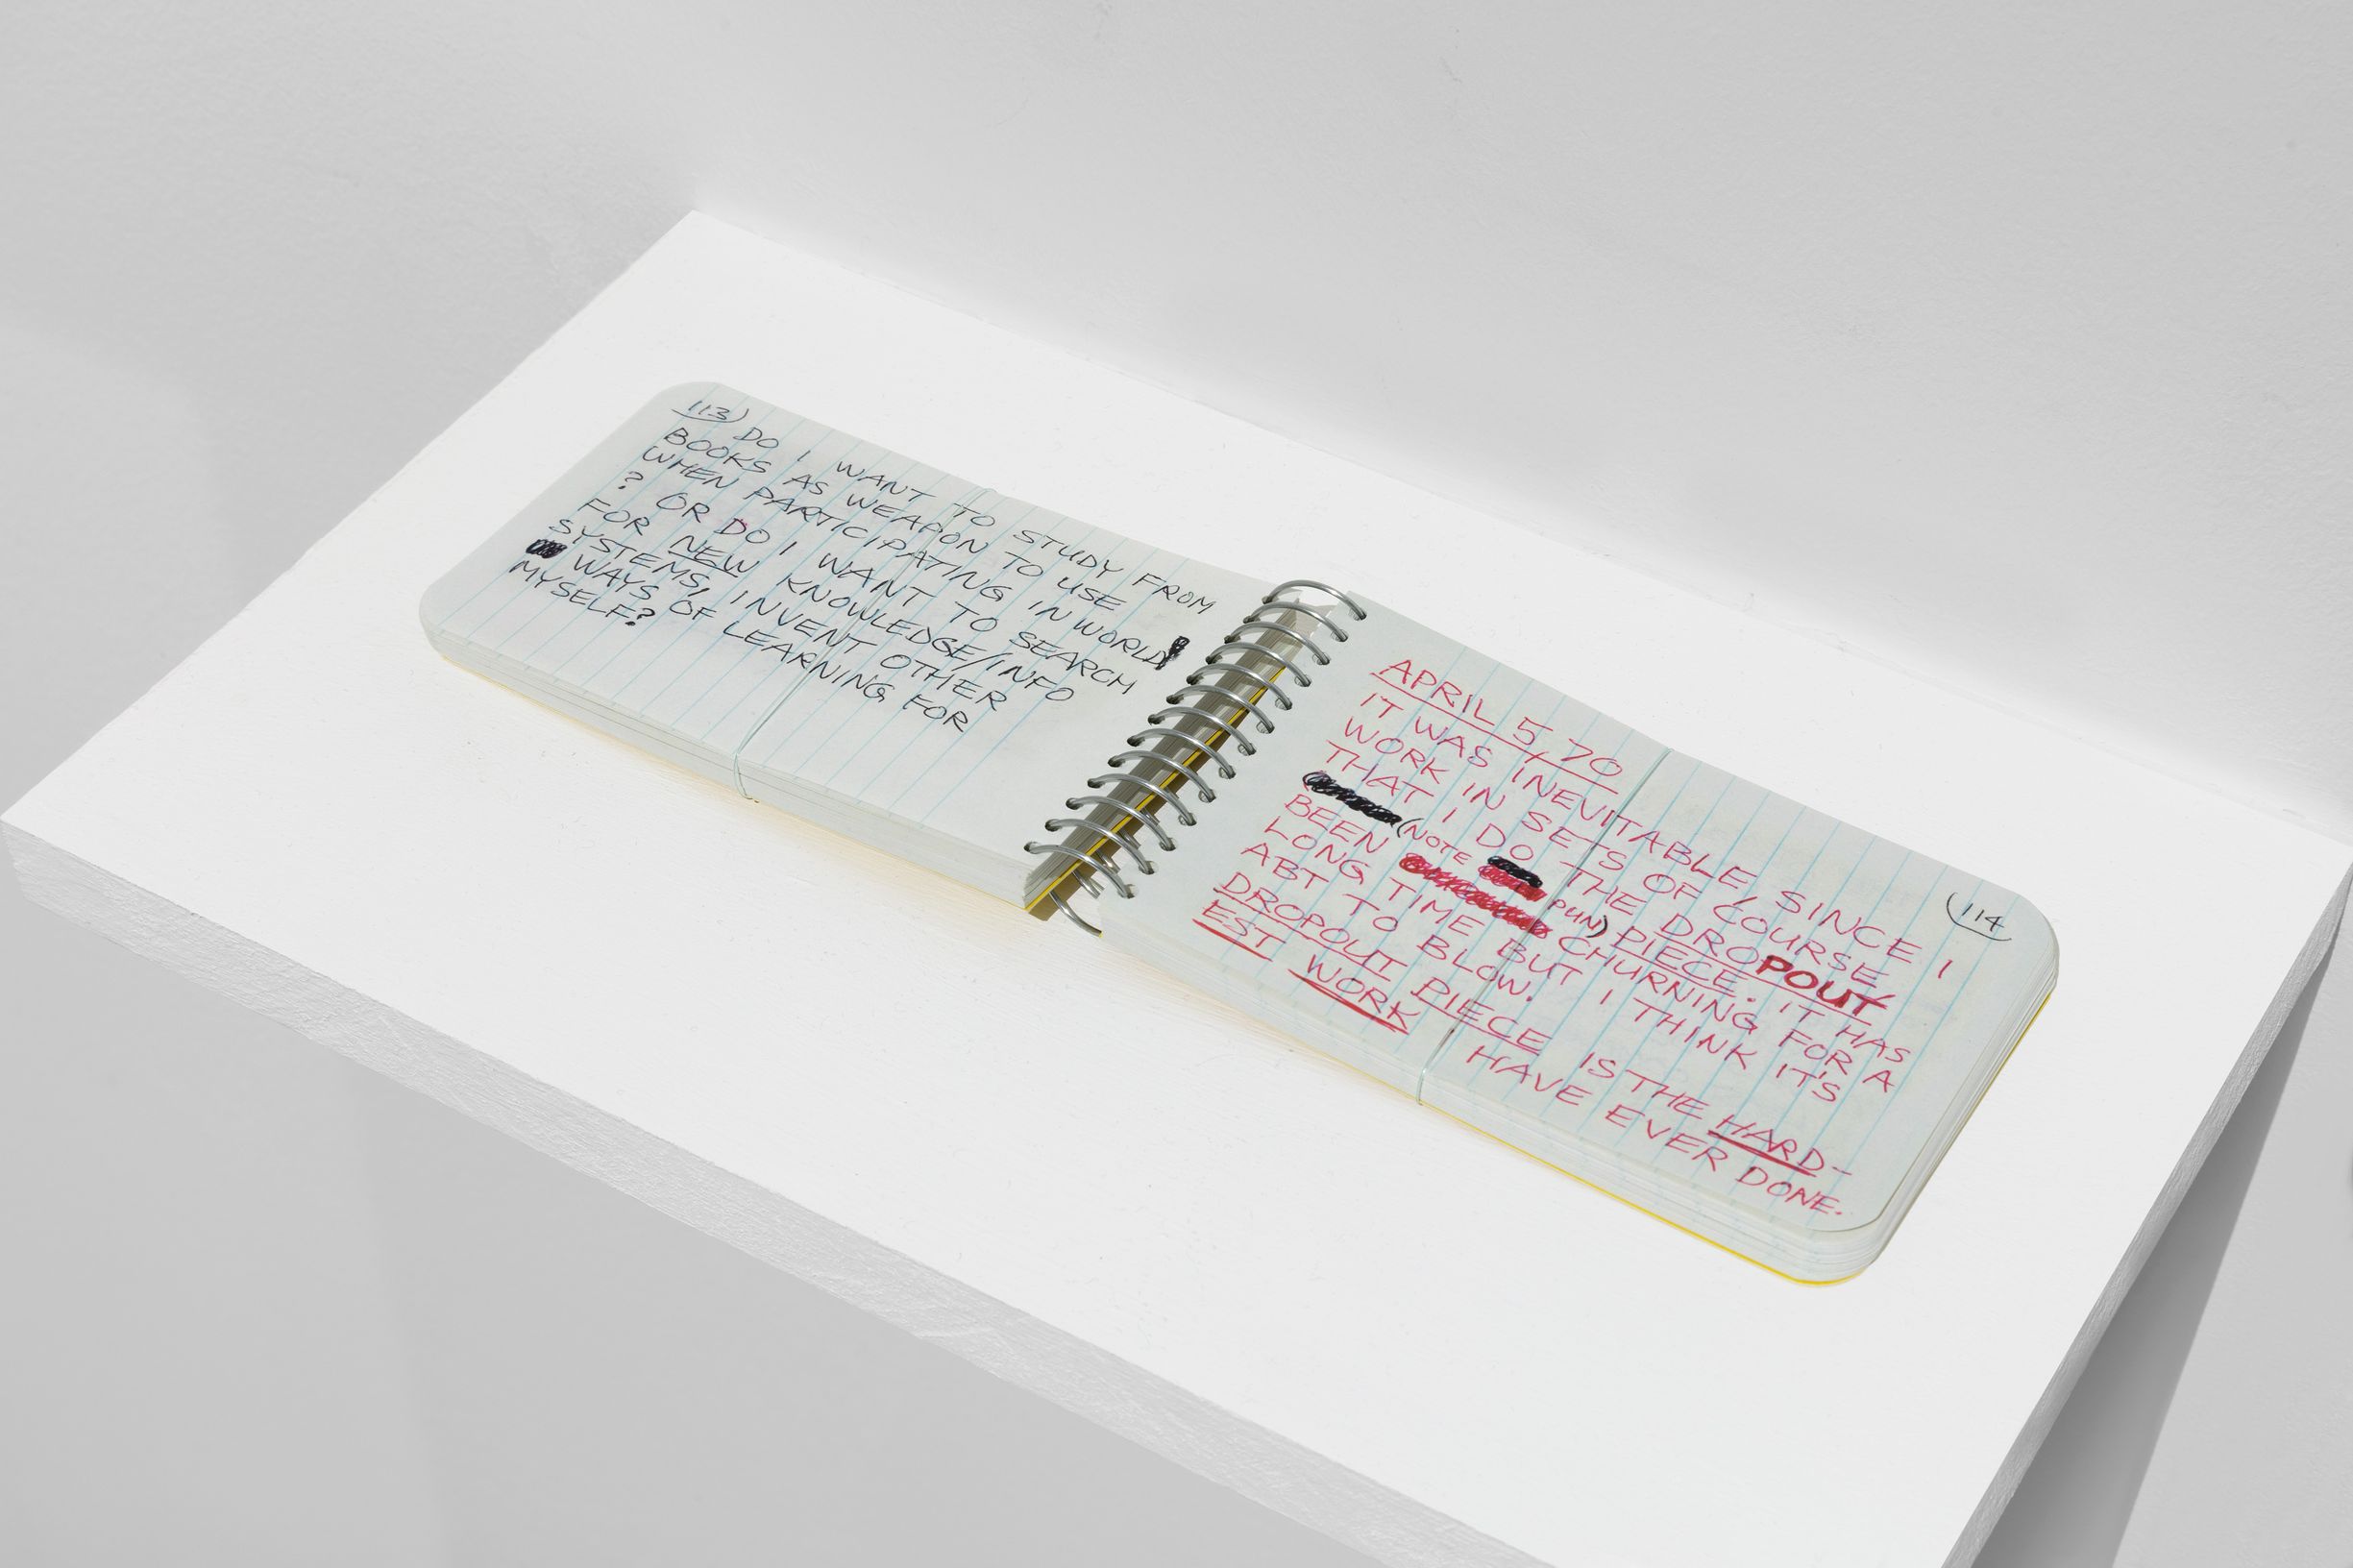 113) DO I WANT TO STUDY FROM
BOOKS AS WEAPON TO USE
WHEN PARTICIPATING IN WORLD
? OR DO I WANT TO SEARCH
FOR NEW KNOWLEDGE/INFO
SYSTEMS, INVENT OTHER
WAYS OF LEARNING FOR
MYSELF?
(114
APRIL 5, 70
IT WAS INEVITABLE, SINCE I
WORK IN SETS OF COURSE,
THAT I DO THE DROPOUT
(NOTE PUN) PIECE. IT HAS
BEEN CHURNING FOR A
LONG TIME BUT I THINK IT'S
ABT TO BLOW.
DROPOUT PIECE IS THE HARD-
EST WORK HAVE EVER DONE.